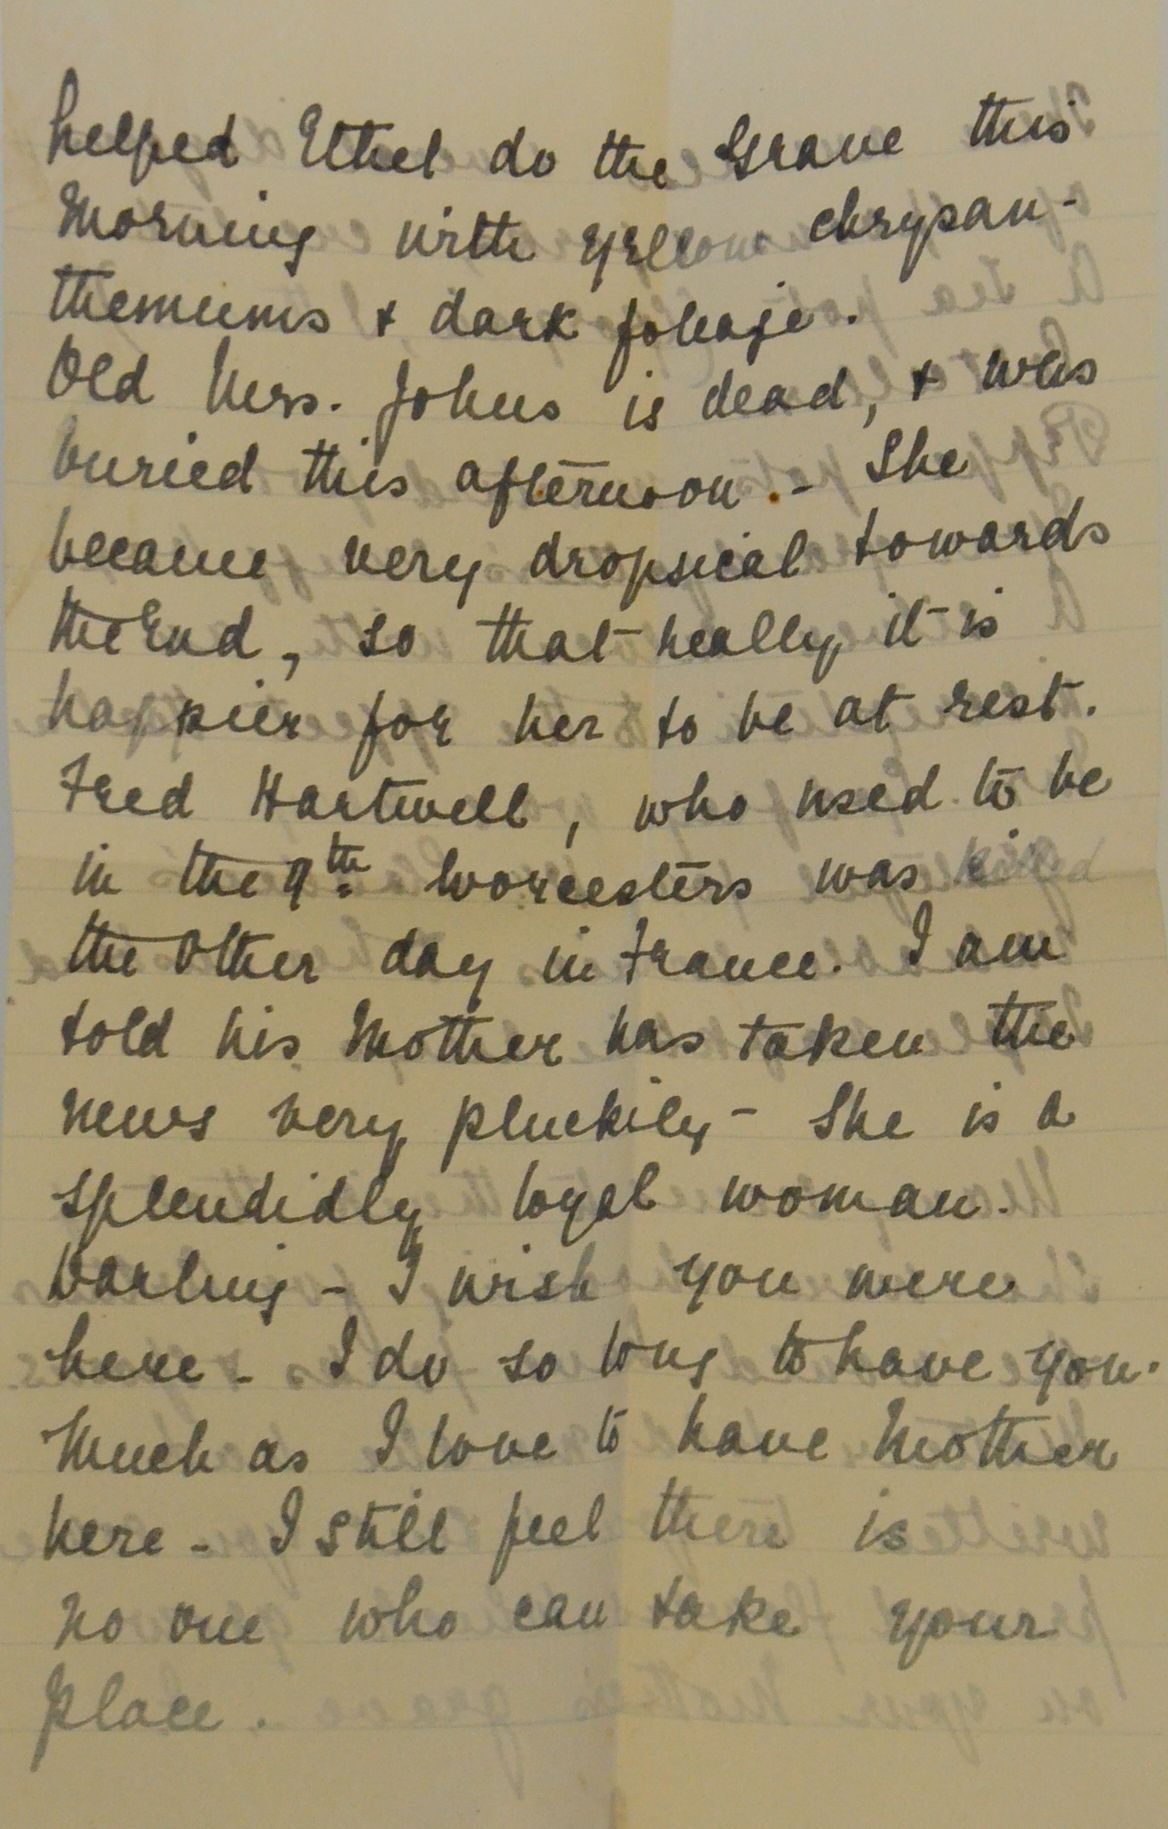 helped Ethel do the Grave this
Morning with yellow chrysan-
themums & dark foliage.
Old Mrs. Johns is dead, & was
buried this afternoon. - She
became very dropsical towards
the End, so that really it is
happier for her to be at rest.
Fred Hartwell, who used to be
in the 9th Worcesters was killed
the Other day in France. I am
told his Mother has taken the
news very pluckily - She is a
splendidly loyal woman.
Darling - I wish you were
here - I do so long to have you.
Much as I love to have Mother
here - I still feel there is
no one who can take your
place.